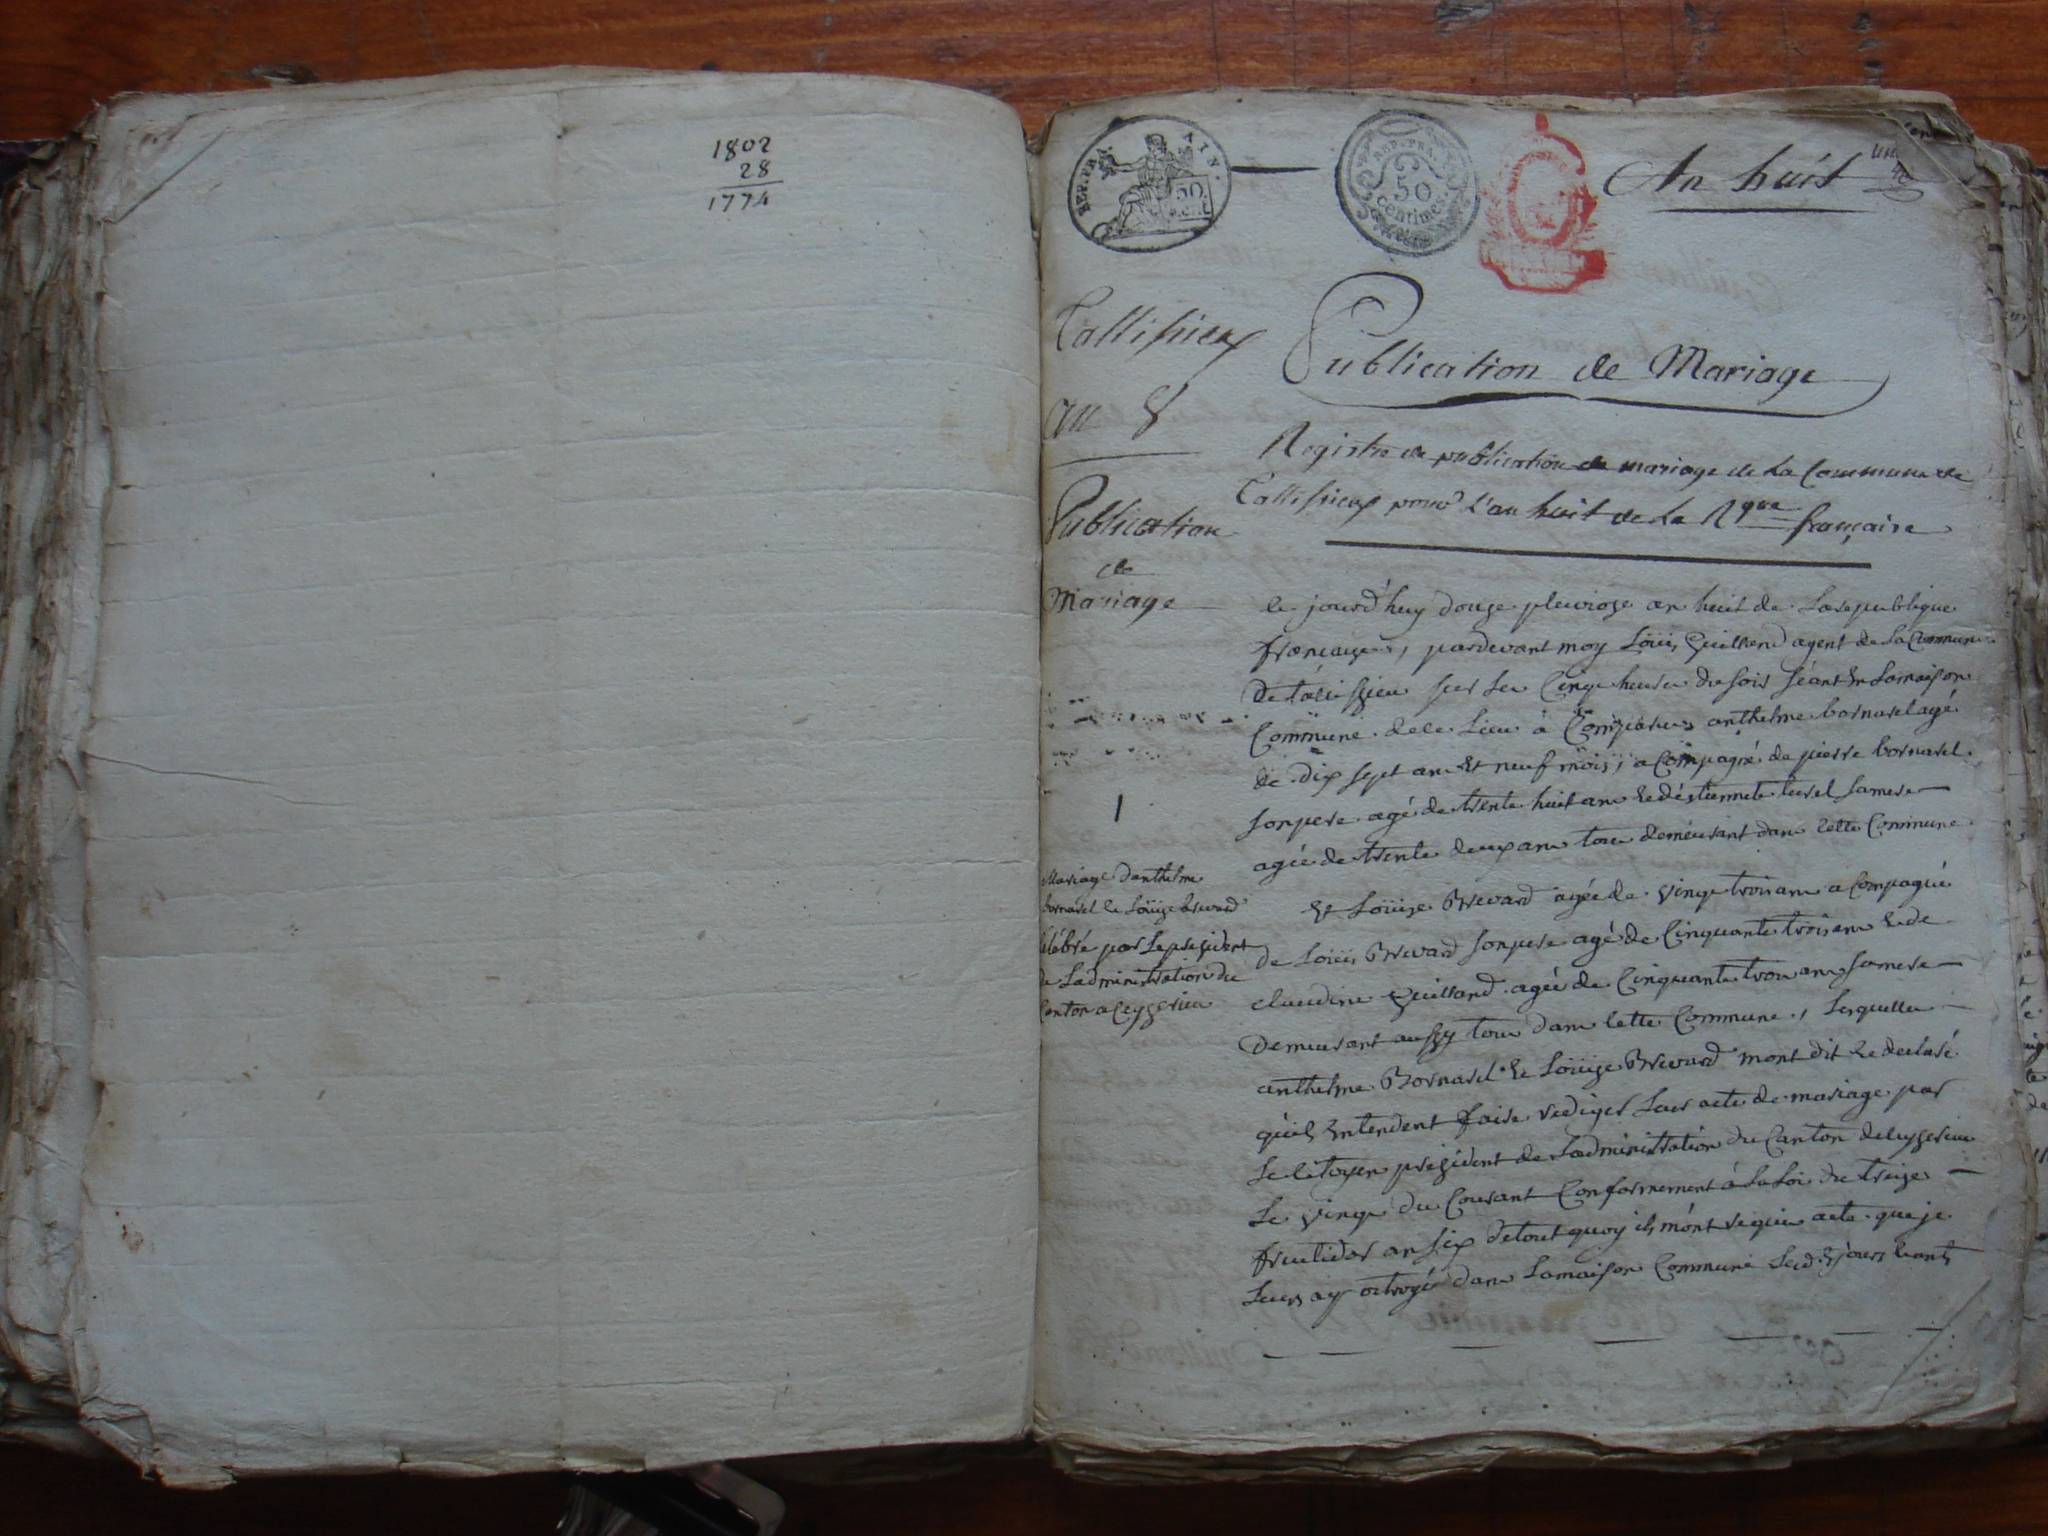 1802
28
1774
REP. FRA.
AIN.
50
cent
REP. FRA.
50
centimes
An huit
Tallissieu
an 8
Publication
de
Mariage
Publication de Mariage
Registre de publication de mariage de la Commune de
Tallissieu pour l'an huit de la Rque française
le jourd'huy douze pluviose an huit de la republique
francaise, pardevant moy Loüis Guilland agent de la Commune
de talissieu sur les Cinq heures du soir séant en la maison
Commune de ce Lieu à Comparus anthelme bornarel agé
de dix sept ans et neuf mois, acompagné de pierre bornarel
son pere agé de trente huit ans et d'éstiennete turel sa mere
agée de trente deux ans tous demeurant dans cette Commune
et Loüise Brevard agée de vingt trois ans acompagné
de Loüis Brevard son pere agé de Cinquante trois ans et de
claudine Guilland agée de Cinquante trois ans sa mere
demeurant aussy tous dans cette Commune, Lesquelles
anthelme Bornarel et Loüise Brevard m'ont dit et declaré
qu'ils entendent faire rediger leur acte de mariage par
le citoyen président de L'administration du Canton de ceyzerieu
le vingt du Courant Conformement à la Loi du treize
fructidor an six de tout quoy ils m'ont requis acte que je
leurs ay octroyé dans la maison Commune les d. jours et ans
1
Mariage d'anthelme
bornarel et Loüise brevard
célébré par le president
de L'administration du
Canton a Ceyzerieu